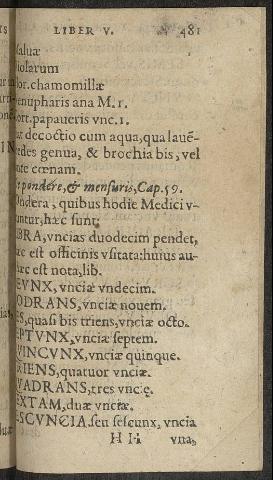 LIBER V. 481
aluæ
iolarum
lor. chamomillæ
enupharis ana M. 1.
ort. papaueris vnc. 1.
at decoctio cum aqua, qua lauē-
edes genua, & brochia bis, vel
nte cœnam.
pondere, & mensuris, Cap. 59.
ondera, quibus hodie Medici v-
untur, hæc sunt:
BRA, vncias duodecim pendet,
æc est officinis vsitata: huius au-
æc est nota, lib.
EVNX, vnciæ vndecim.
ODRANS, vnciæ nouem.
ES, quasi bis triens, vnciæ octo.
EPTVNX, vnciæ septem.
VINCVNX, vnciæ quinque.
RIENS, quatuor vnciæ.
VADRANS, tres vncę.
EXTAM, duæ vnciæ.
ESCVNCIA, seu sescunx, vncia
H H i vna,